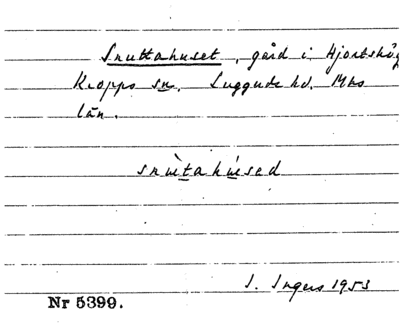 Snuttahuset, gård i Hjortshög
Kropps sn. Luggude hd. Mhs
län.
snùtahúsed
I. Ingers 1953
Nr 5399.